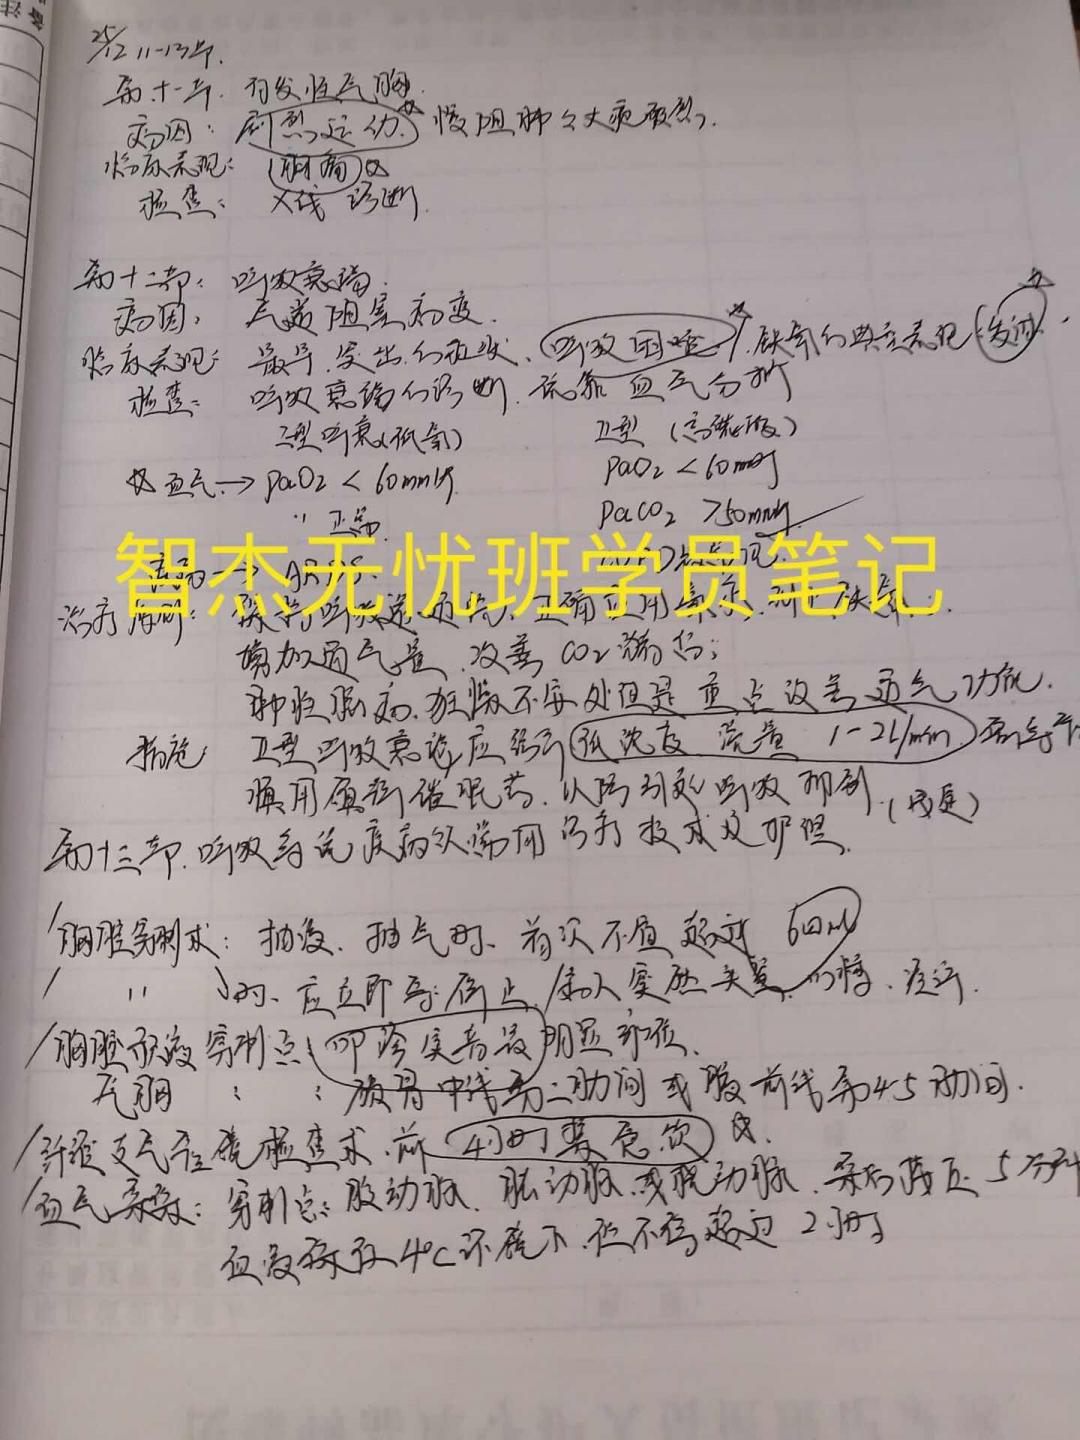 备注
25/12 11-13节.
第十一节. 自发性气胸.
病因: 剧烈运动. 慢阻肺 大疱破裂.
临床表现: 胸痛
检查: X线诊断.
第十二节: 呼吸衰竭.
病因: 气道阻塞病变.
临床表现: 最早.突出的症状. 呼吸困难. 缺氧的典型表现 发绀.
检查: 呼吸衰竭的诊断. 依靠血气分析
I型呼衰(低氧) II型 (高碳酸)
血气→ PaO2 < 60mmHg. PaO2 < 60mmHg
〃 正常. PaCO2 >50mmHg
→ ARDS.
智杰无忧班学员笔记
治疗原则: 保持呼吸道通畅. 正确应用氧疗. 纠正缺氧.
增加通气量. 改善CO2潴留;
肺性脑病.狂躁不安处理是重点改善通气功能.
措施: II型呼吸衰竭应给予 低浓度 流量 1-2L/min
慎用镇静催眠药. 以防引起呼吸抑制.
第十三节. 呼吸系统疾病的常用诊疗技术及护理.
胸腔穿刺术: 抽液、抽气时、首次不宜超过 600ml
〃 时、应立即 停止. 病人突然头晕.
胸腔积液穿刺点: 叩诊实音最明显部位.
气胸 : : 锁骨中线第二肋间或腋前线第4-5肋间.
纤维支气管镜检查术.前 4小时禁食饮
血气采集: 穿刺点: 股动脉. 肱动脉.或桡动脉. 采后按压 5分钟
血液存放4℃环境下.但不得超过2小时